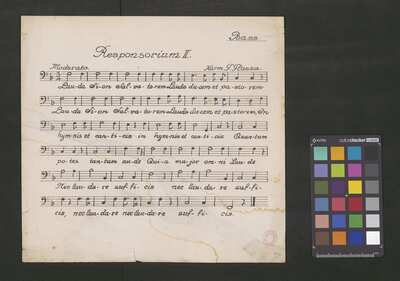 Bass
Responsorium II.
Moderato. Harm.
Lau-da Si-on Sal-va-to-rem Lauda du-cem et pa-sto-rem
Lau-da Si-on Sal-va-to-rem Lauda ducem et pastorem, In
hym-nis et can-ti-cis in hym-nis et can-ti-cis Quantum
po-tes tan-tum au-de Qui-a ma-jor om-ni Lau-de
Nec lau-da-re suf-fi-cis nec lau-da-re suf-fi-
cis, nec lau-da-re nec lau-da-re suf-fi-cis.